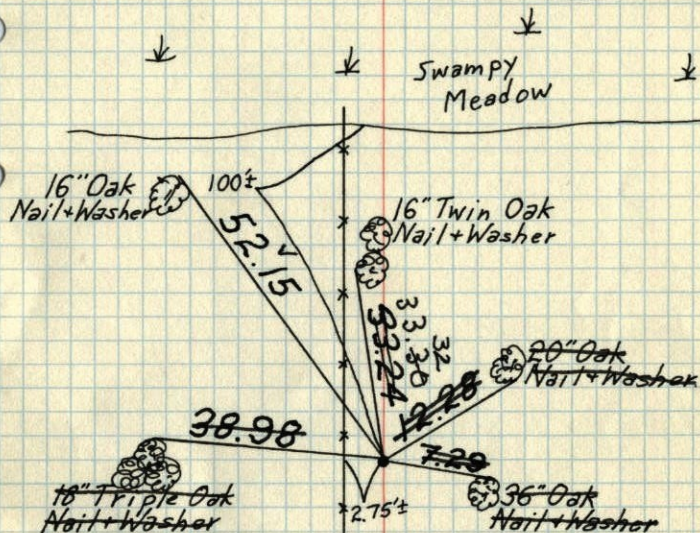 Swampy
Meadow
16" Oak
Nail + Washer
100'±
52.15
16" Twin Oak
Nail + Washer
33.24
33.30
32
20" Oak
Nail + Washer
12.28
38.98
7.29
18" Triple Oak
Nail + Washer
2.75'±
36" Oak
Nail + Washer